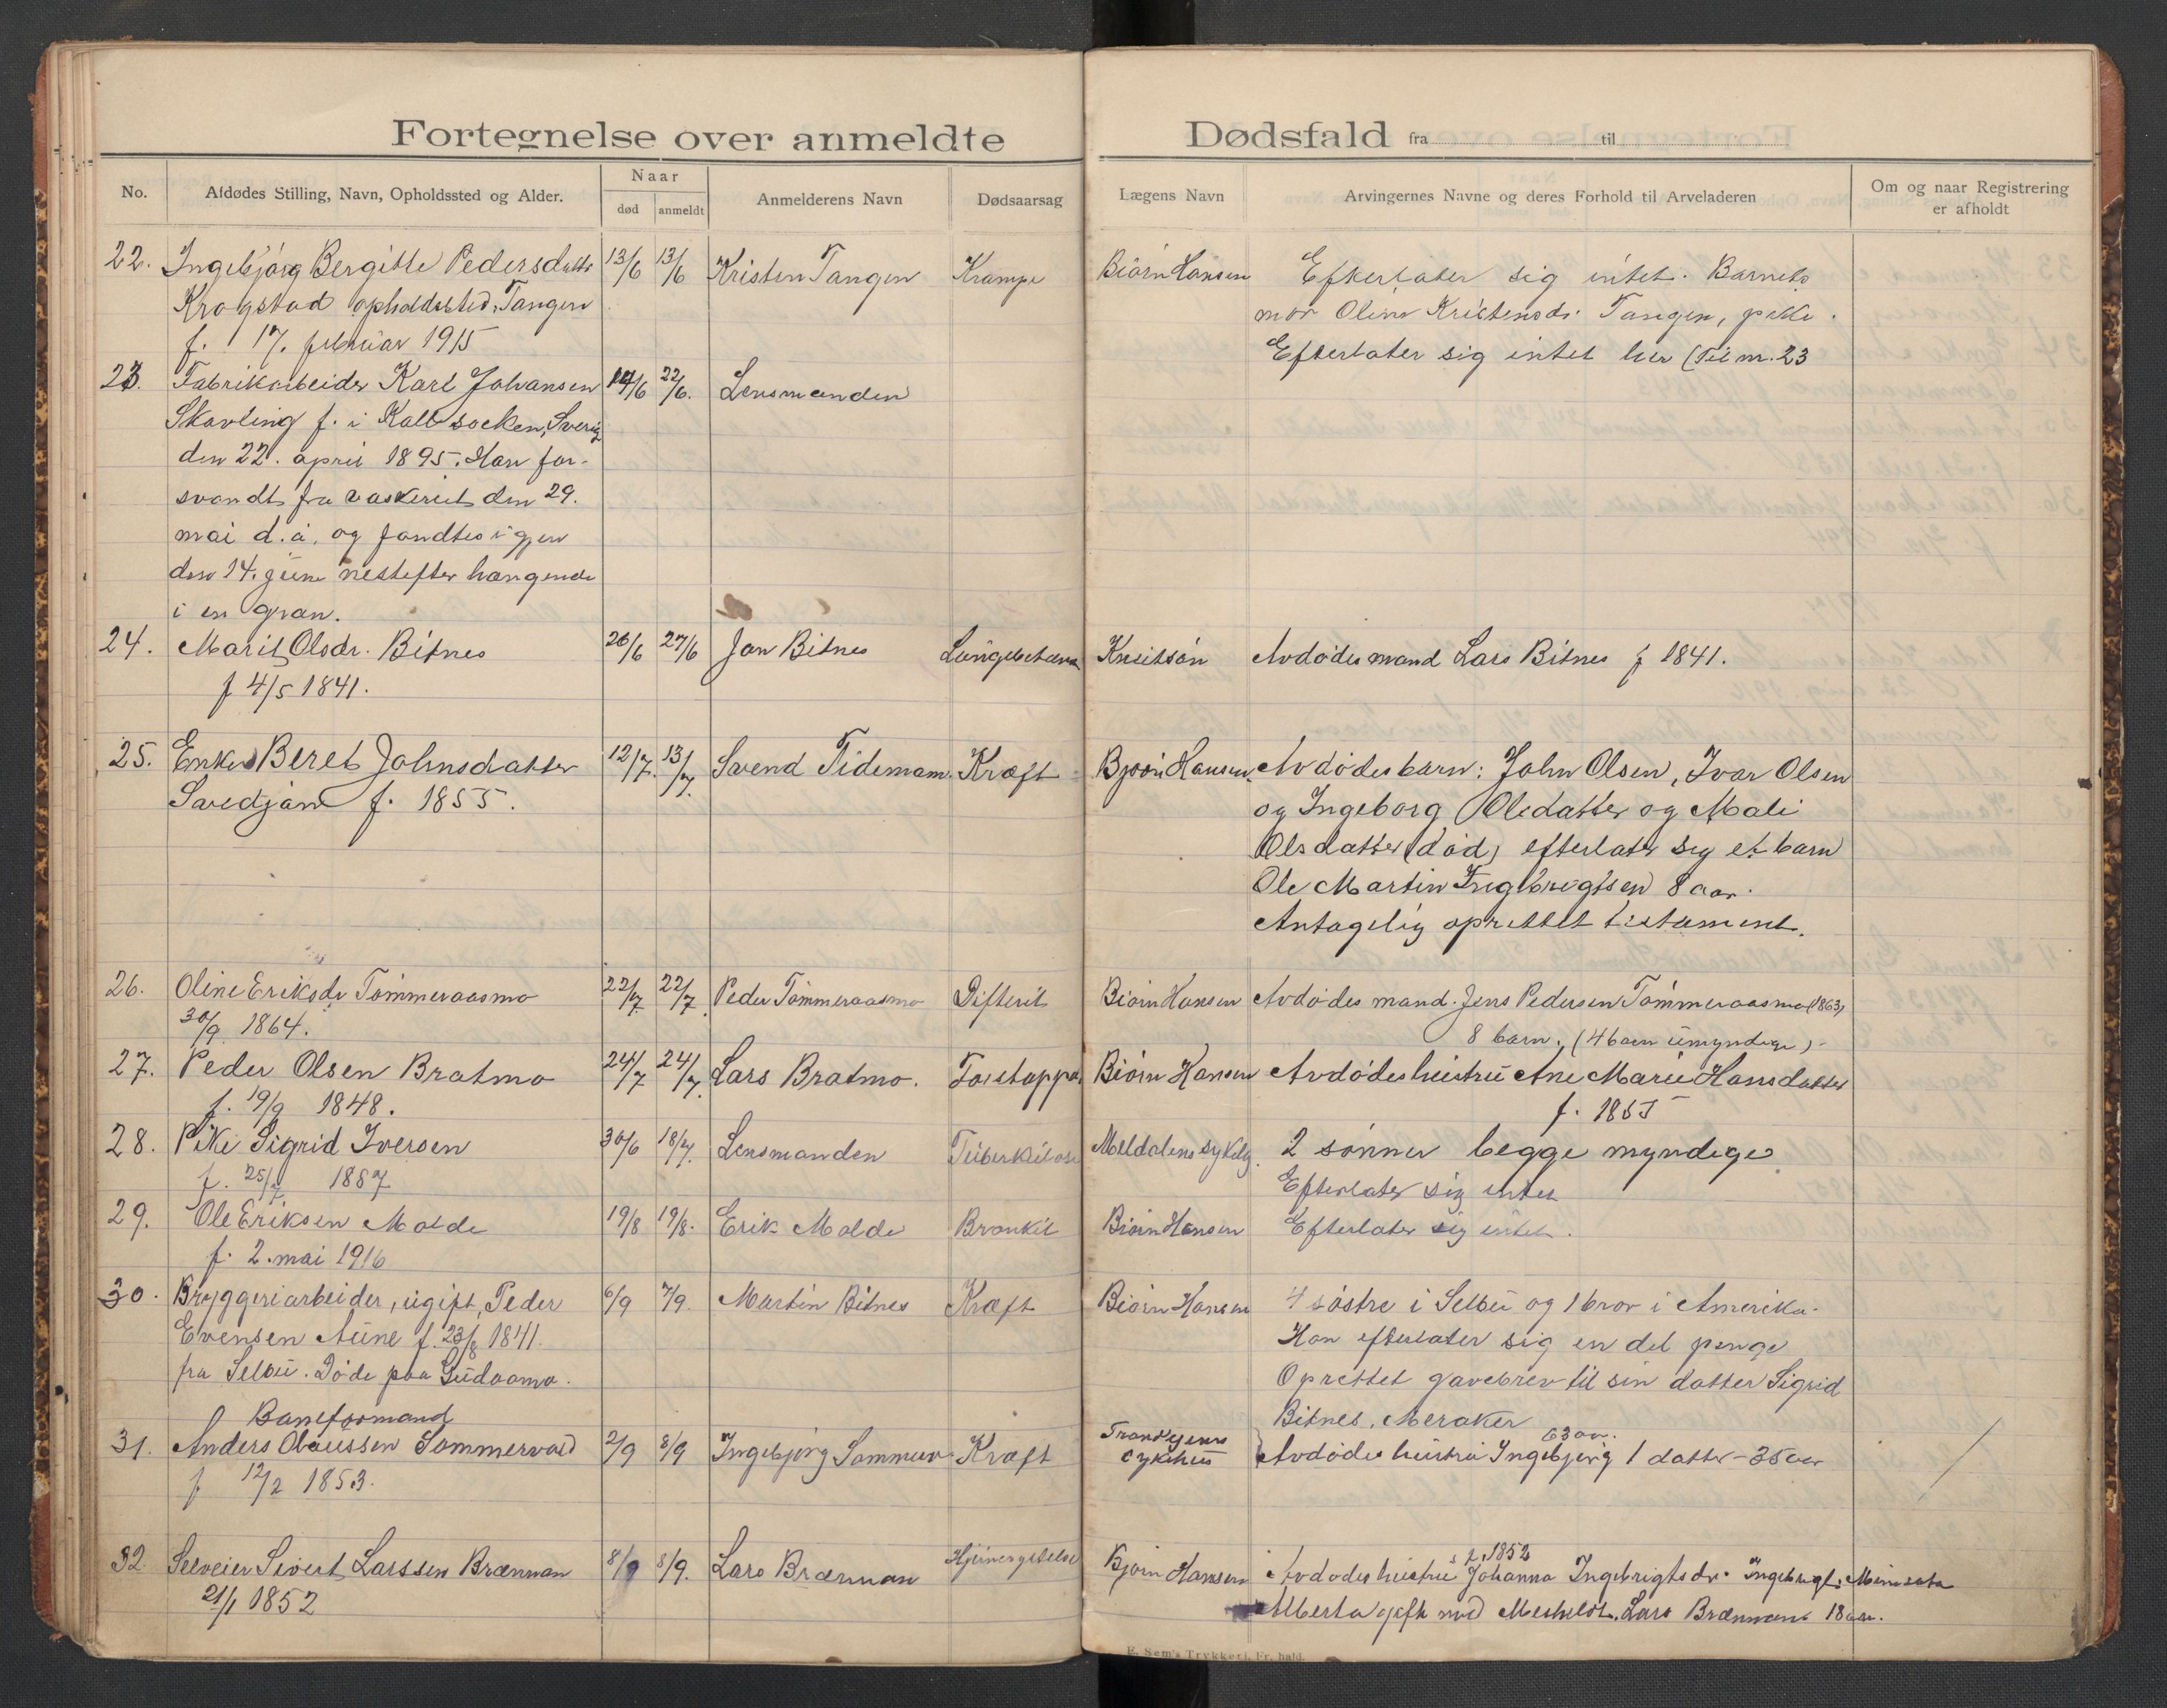 Fortegnelse over anmeldte Dødsfald fra til
No. Afdødes Stilling, Navn, Opholdssted og Alder. Naar død anmeldt Anmelderens Navn Dødsaarsag Lægens Navn Arvingernes Navne og deres Forhold til Arveladeren Om og naar Registrering er afholdt
22. Ingebjörg Bergitte Pedersdatter 13/6 13/6 Kristen Tangen Krampe Biörn Hansen Efterlater sig intet. Barnets
Krogstad opholdssted Tangen mor Oline Kristensdr. Tangen, pike.
f. 17. februar 1915 Efterlater sig intet her (Til nr. 23
23. Fabrikarbeider Karl Johansen 14/6 22/6. Lensmanden
Skavling f. i Kall socken, Sverig
den 22. april 1895. Han for-
svandt fra vaskeriet den 29.
mai d.å. og fandtes igjen
den 14. juni nestefter hængende
i en gran.
24. Marit Olsdr. Bitnes 26/6 27/6 Jon Bitnes Knutsön Avdödes mand Lars Bitnes f 1841.
f 4/5 1841.
25. Enke Beret Johnsdatter 12/7. 13/7. Svend Tidemann Kræft Bjoörn Hansen. Avdödes barn: John Olsen, Ivar Olsen
f. 1855. og Ingeborg Olsdatter og Mali
Olsdatter (död) efterlater sig et barn
Ole Martin Ingebrigtsen 8 aar.
Antagelig oprettet testament.
26. Oline Eriksdr Tömmeraasmo 22/7 22/7. Peder Tömmeraasmo Difterit Biörn Hansen Avdödes mand. Jens Pedersen Tömmeraasmo (1863)
30/9 1864. 8 barn. (4 barn umyndige)
27. Peder Olsen Bratmo 24/7 24/7. Lars Bratmo. Biörn Hansen Avdödes hustru Ane Marie Hansdatter
f. 19/9 1848. f. 1855
28. Pike Sigrid Iversen 30/6 18/7. Lensmanden Tuberkulose Meldalens sykehj. 2 sönner begge myndige
f. 25/7 1887 Efterlater sig intet
29. Ole Eriksen Molde 19/8 19/8. Erik Molde Bronkit Biörn Hansen Efterlater sig intet.
f. 2. mai 1916
30. Bryggeriarbeider, ugift, Peder 6/9 7/9. Martin Bitnes Kræft Biörn Hansen 4 söstre i Selbu og 1 bror i Amerika.
Evensen Aune f. 23/8 1841. Han efterlater sig en del penge
fra Selbu. Döde paa Gudaamo. Oprettet gavebrev til sin datter Sigrid
Baneformand Bitnes. Meraker
31. Anders Olaussen Sommervold 2/9 8/9 Ingebjörg Sommerv. Kræft Trondhjems sykehus Avdödes hustru Ingebjörg 63 aar. 1 datter - 35 aar
f 12/2 1853.
32 Selveier Sivert Larssen Brænman 8/9 8/9. Lars Brænman Bjørn Hansen Avdødes hustru Johanna f. 1852 Ingebrigtsdr. Ingebrigt.
21/1 1852 Alberta gift med Lars Brænman 18 aar.
E. Sem's Trykkeri, Fr. hald.